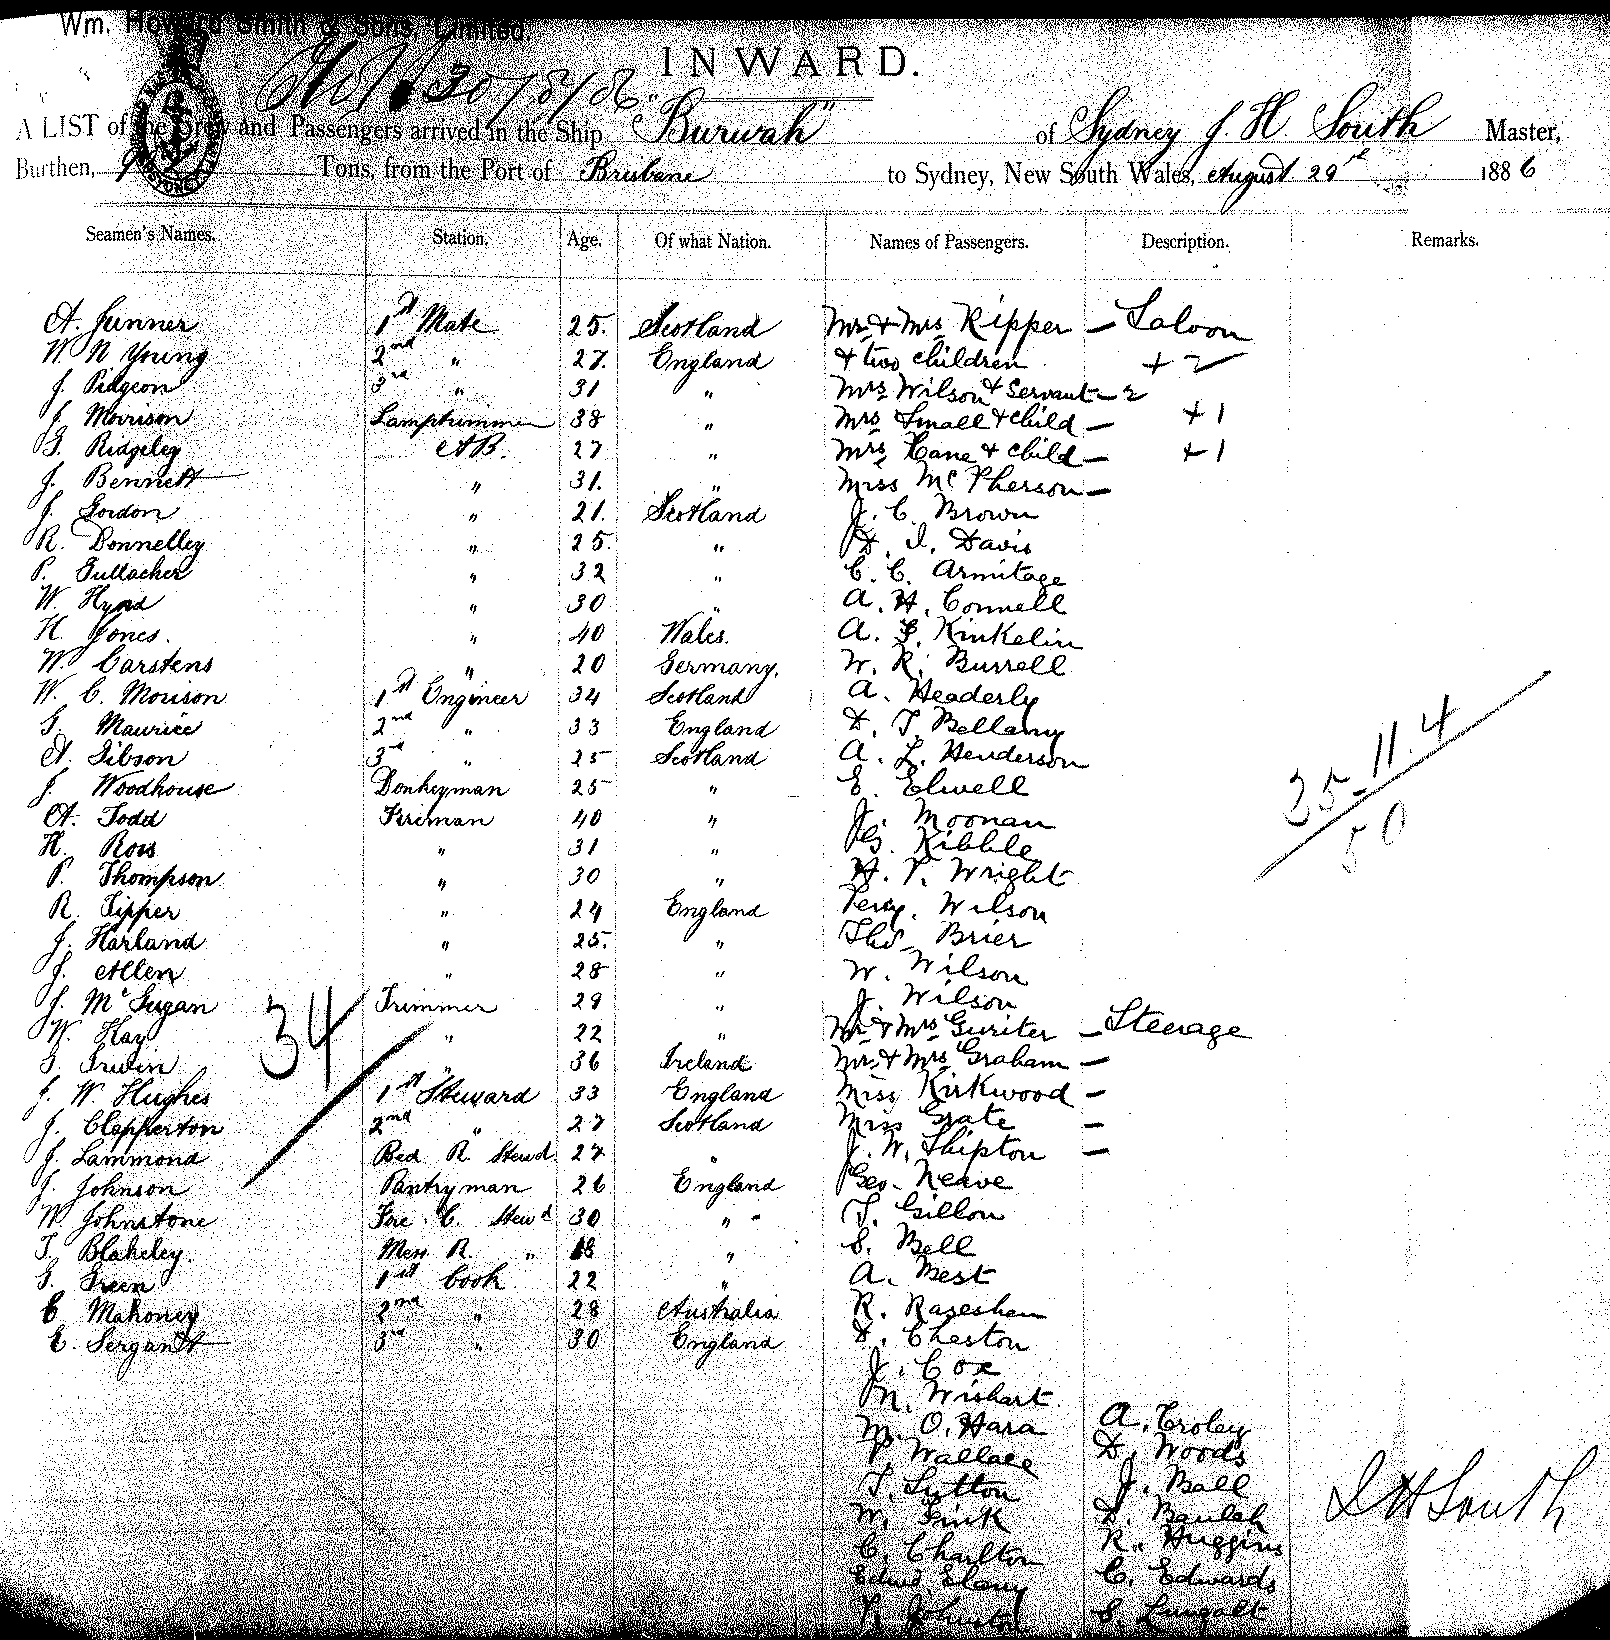 Wm. Howard Smith & Sons, Limited.
INWARD.
30/8/86
A LIST of the Crew and Passengers arrived in the Ship "Burwah" of Sydney J. H. South Master,
Burthen, Tons, from the Port of Brisbane to Sydney, New South Wales, August 29th 1886
Seamen's Names. Station. Age. Of what Nation. Names of Passengers. Description. Remarks.
A. Junner 1st Mate 25. Scotland Mr & Mrs Kipper — Saloon
W N Young 2nd " 27. England & two children + 2
J. Pidgeon 3rd " 31 " Mrs Wilson & Servant — 2
J. Morrison Lamptrimmer 38 " Mrs Small & child — + 1
G. Ridgeley AB. 27 " Mrs Kane & child — + 1
J. Bennett " 31. " Miss McPherson —
J. Gordon " 21. Scotland J. C. Brown
R. Donnelley " 25. " D. I. Davis
P. Gullacher " 32 " C. C. Armitage
W. Hynd " 30 " A. H. Connell
H. Jones. " 40 Wales. A. F. Kinkelin
W. Carstens " 20 Germany. W. R. Burrell
W. C. Morison 1st Engineer 34 Scotland A. Headerly
G. Maurice 2nd " 33 England D. T. Bellamy
A. Gibson 3rd " 25 Scotland A. L. Henderson
J. Woodhouse Donkeyman 25 " E. Elwell
A. Todd Fireman 40 " J. Moonan
H. Ross " 31 " G. Kibble
P. Thompson " 30 " H. V. Wright
R. Tipper " 24 England Percy. Wilson
J. Harland " 25. " Thos Brier
J. Allen " 28 " W. Wilson
J. McGugan Trimmer 29 " J. Wilson
W. Kay " 22 " Mr & Mrs Guriter — Steerage
G. Irwin " 36 Ireland Mr & Mrs Graham —
J. W. Hughes 1st Steward 33 England Miss Kirkwood —
J. Clapperton 2nd " 27 Scotland Miss Grate —
J. Lammond Bed R. Stewd 27 " J. W. Shipton —
J. Johnson Pantryman 26 England Geo. Neave
W. Johnstone Fore. C. Stewd 30 " T. Gillon
T. Blakeley. Mess R. " 18 " S. Bell
G. Green 1st Cook 22 " A. Best
C Mahoney 2nd " 28 Australia R. Rasesham
E. Sergantt 3rd " 30 England D. Cheston
J. Cox
M. Wishart
M. O. Hara A. Croley
P. Wallace D. Woods
T. Sutton J. Ball
W. Fink D. Beulah
C. Charlton R. Huggins
C. Edwards
34
25-11.4
50
J H South